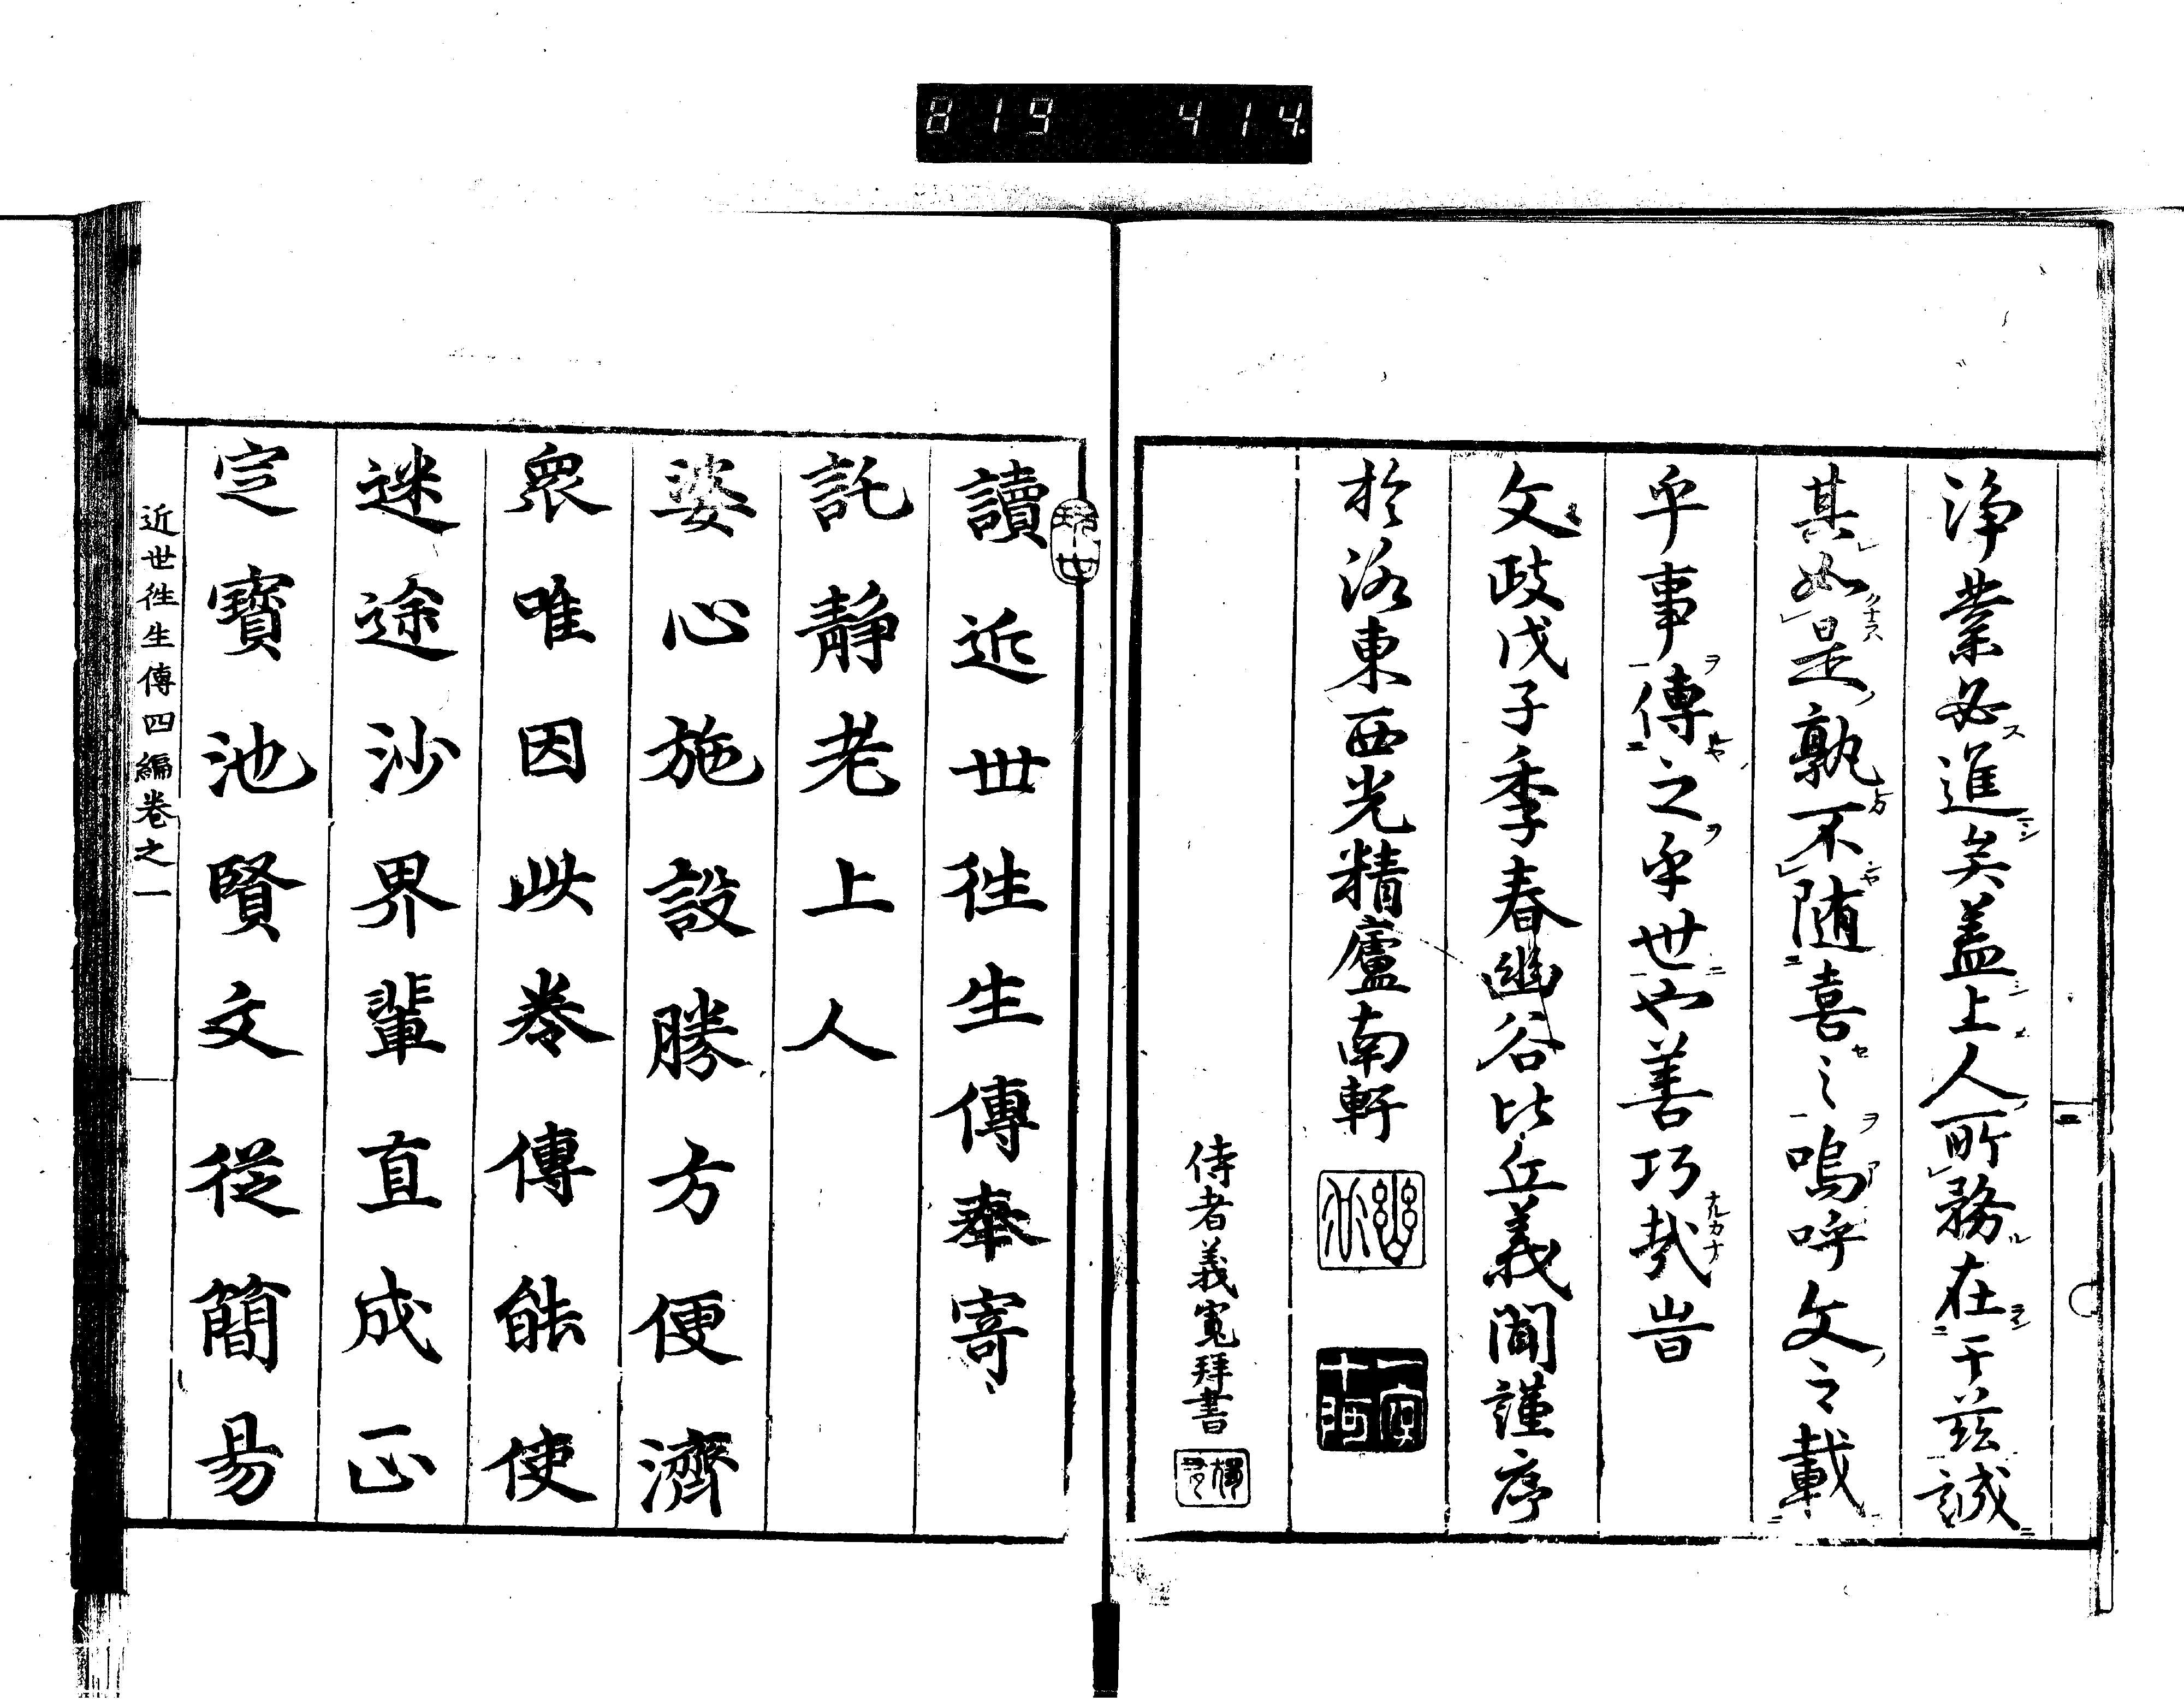 819 414
淨業必進矣蓋上人所務在于茲誠
其如是孰不随喜之嗚呼文之載
乎事傳之乎世也善巧哉旹
文政戊子季春幽谷比丘義聞謹序
於洛東西光精廬南軒
侍者義寬拜書
讀近世往生傳奉寄
託靜老上人
婆心施設勝方便濟
衆唯因此卷傳能使
迷途沙界輩直成正
定寶池賢文從簡易
近世往生傳四編卷之一
二